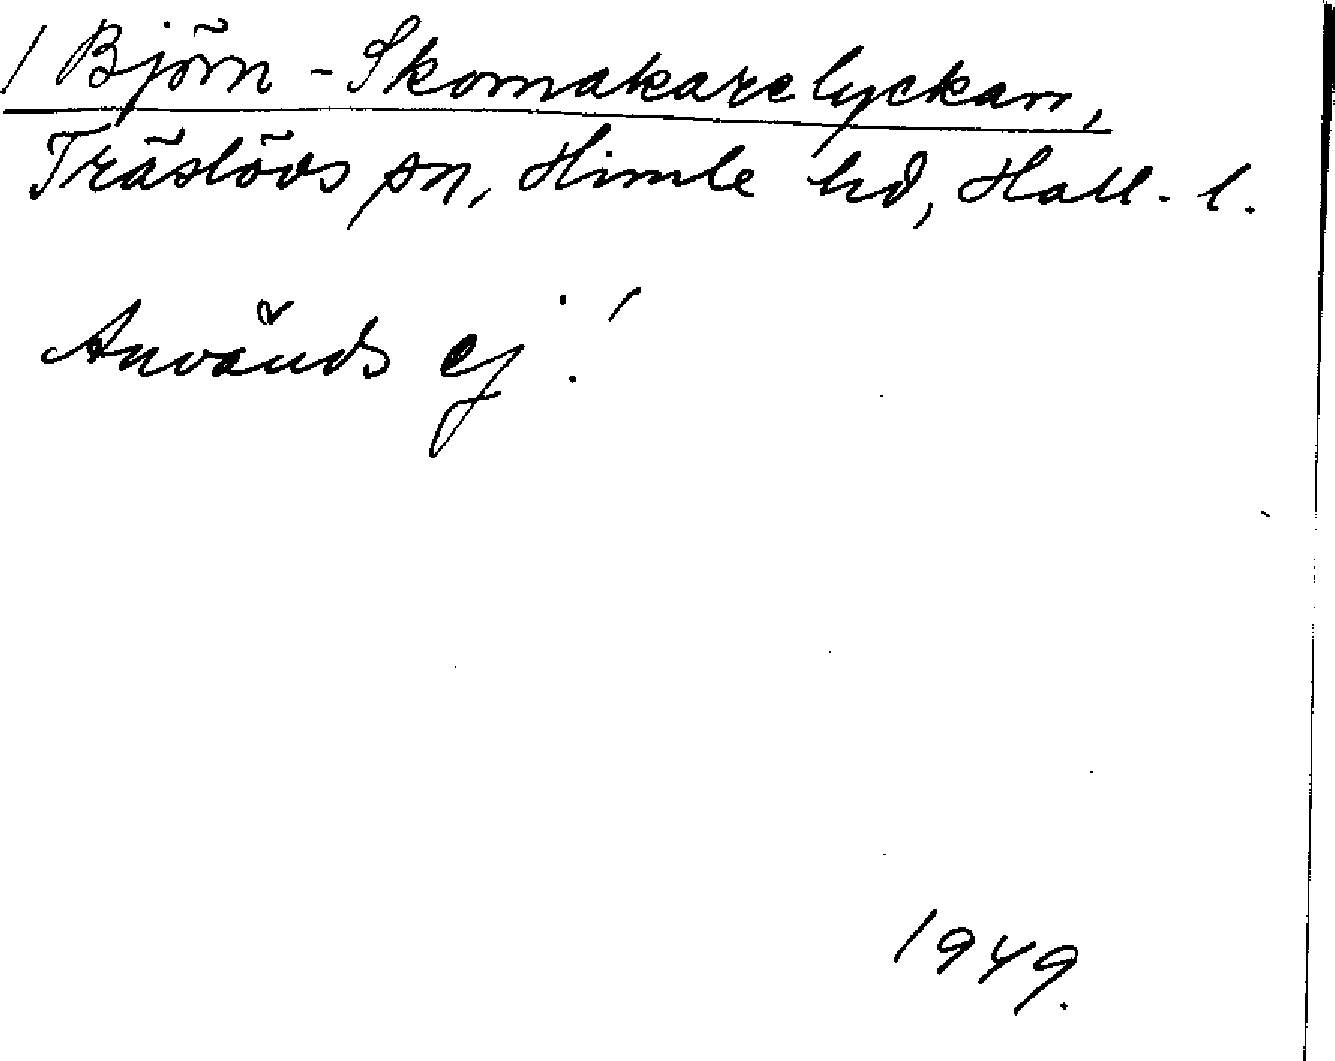 / Björn - Skomakarelyckan,
Träslövs sn, Himle hd, Hall. l.
Används ej!
1949.